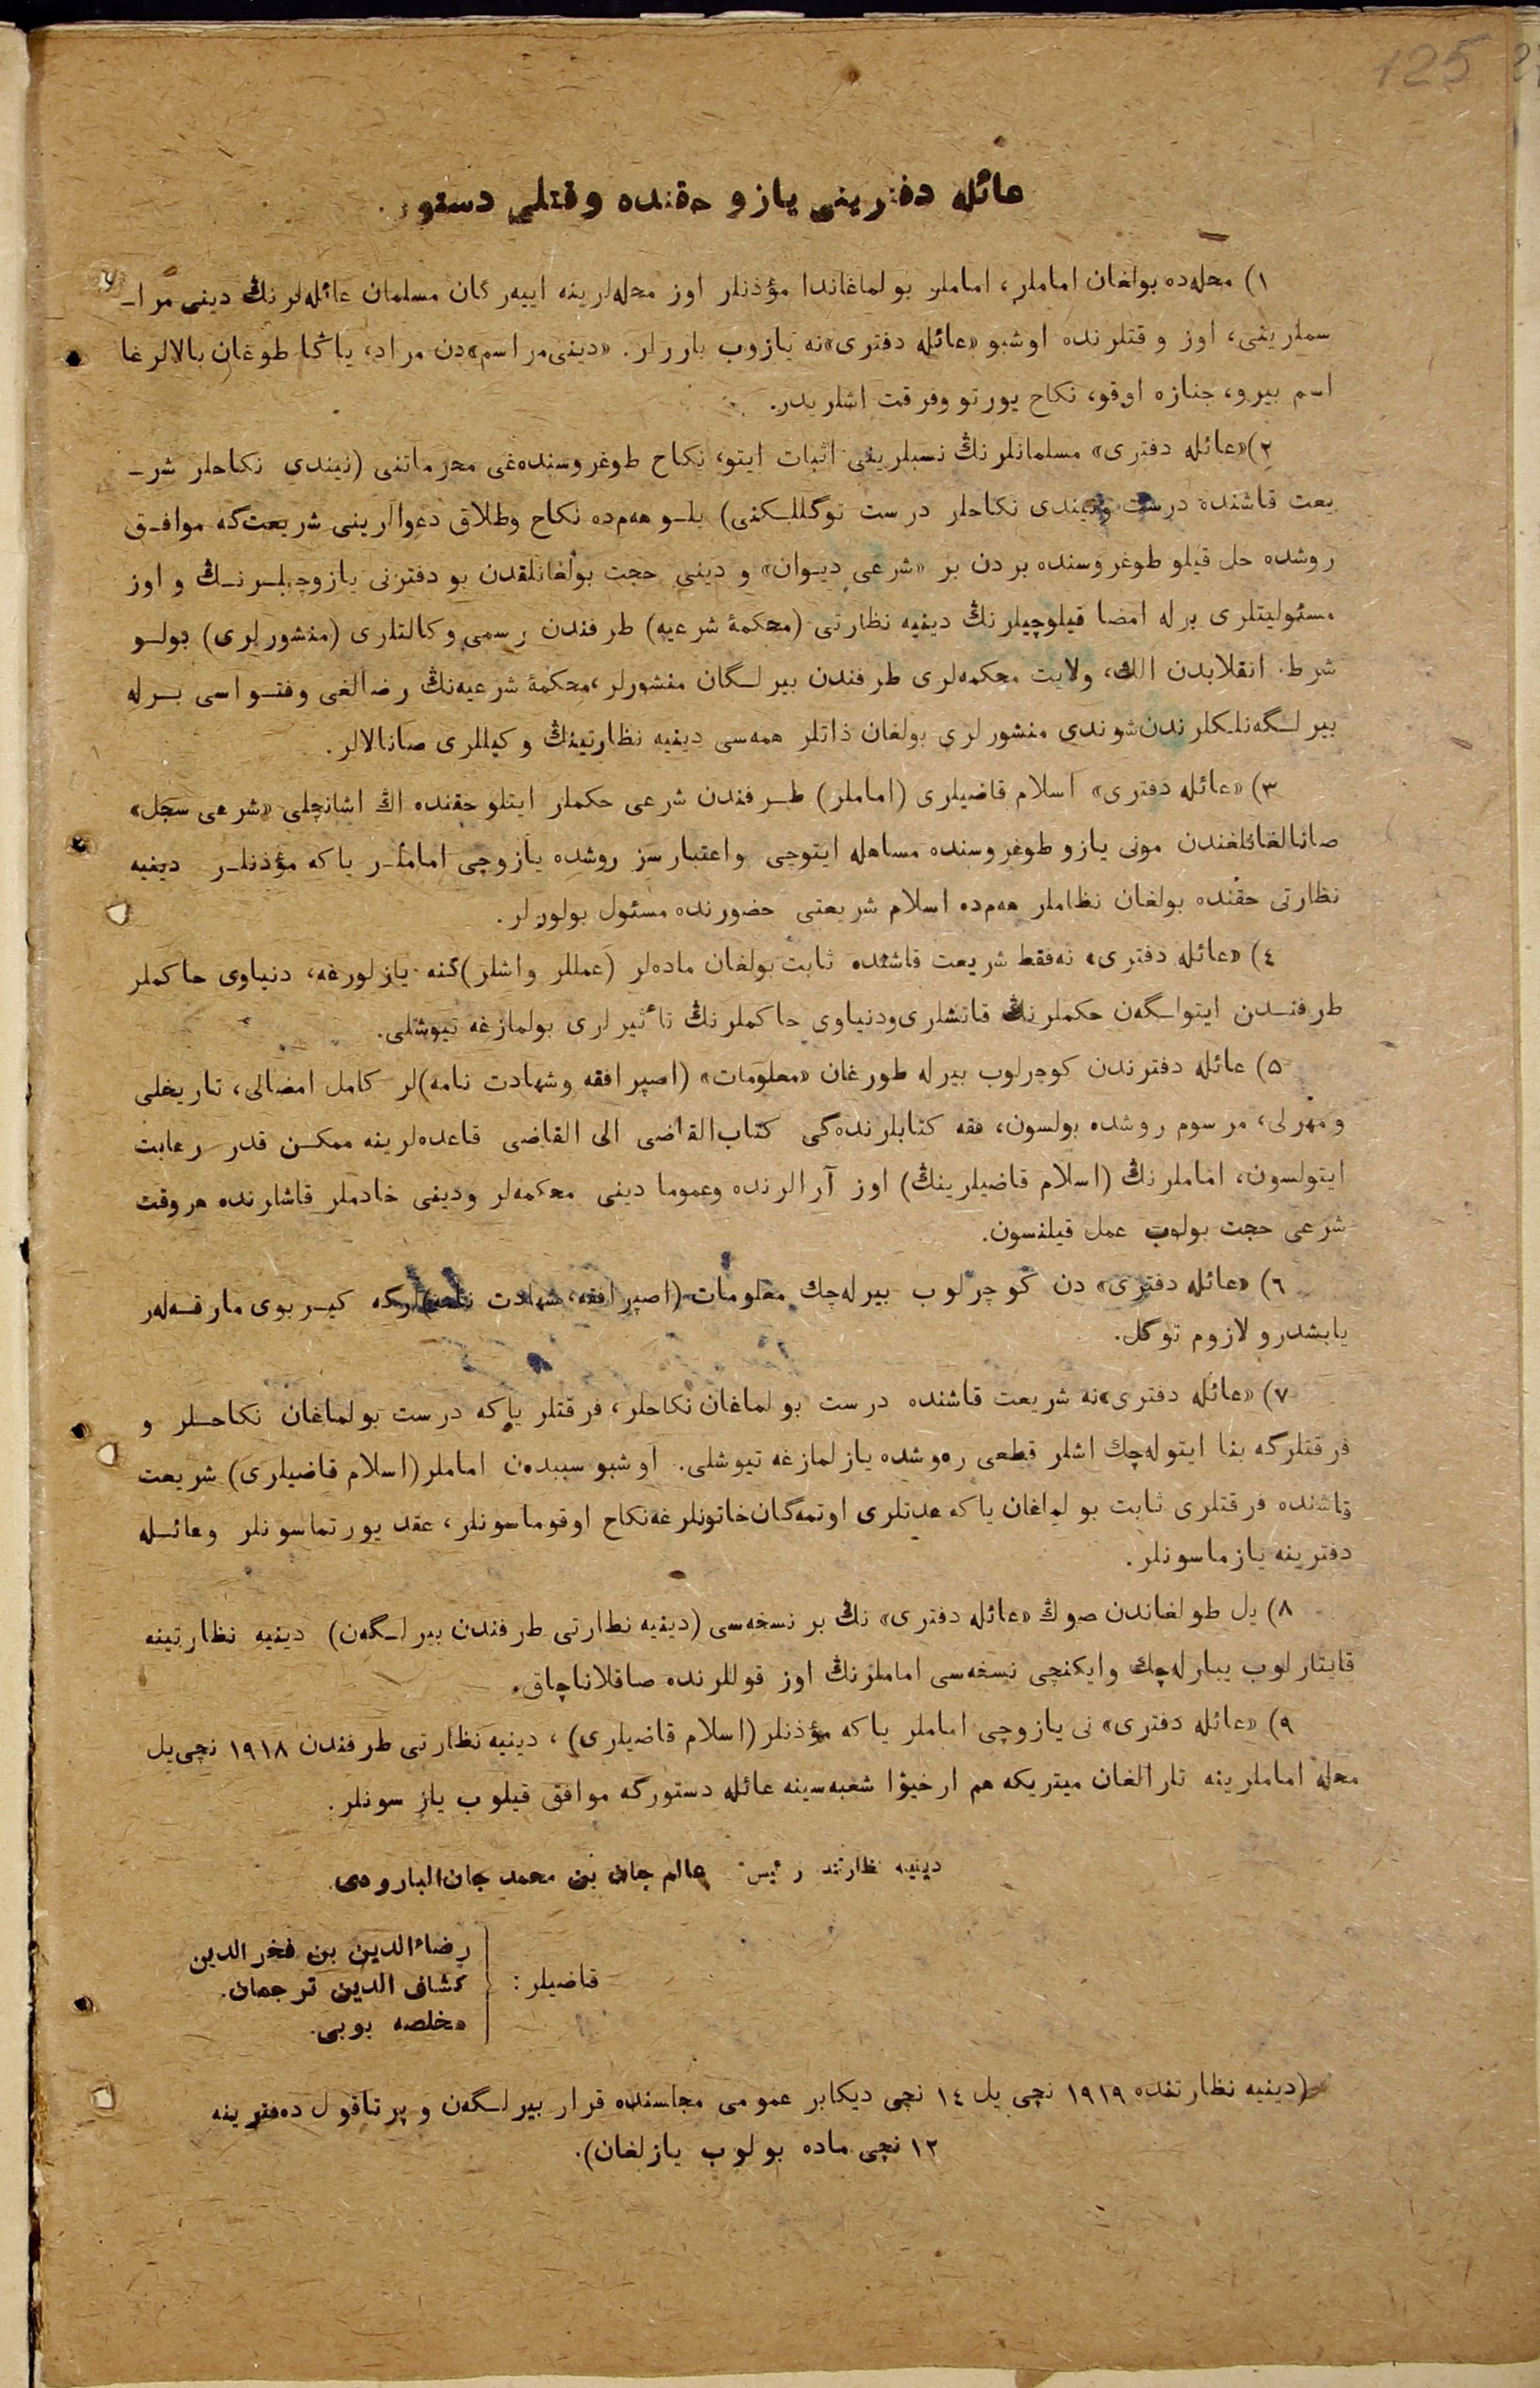 125
عائله دفترینی یازو حقنده وقتلی دستور.
١) محله‌ده بولغان اماملر، اماملر بولماغاندا مؤذنلر اوز محله‌لرینه اییه‌رگان مسلمان عائله‌لرنڭ دینی مرا-
سملرینی، اوز وقتلرنده اوشبو «عائله دفتری»نه یازوب باررلر. «دینی مراسم»دن مراد، یاڭا طوغان بالالرغا
اسم بیرو، جنازه اوقو، نکاح یورتو وفرقت اشلریدر.
٢) «عائله دفتری» مسلمانلرنڭ نسبلرینی اثبات ایتو، نکاح طوغروسنده‌غی محرماتنی (نیندی نکاحلر شر-
یعت قاشنده درست ونیندی نکاحلر درست توگللـکنی) بلـو هه‌م‌ده نکاح وطلاق دعوالرینی شریعت‌که موافـق
روشده حل قیلو طوغروسنده بردن بر «شرعی دیـوان» و دینی حجت بولغانلقدن بو دفترنی یازوچیلـرنـڭ و اوز
مسئولیتلری برله امضا قیلوچیلرنڭ دینیه نظارتی (محکمهٔ شرعیه) طرفندن رسمی وکالتلری (منشورلری) بولـو
شرط. انقلابدن الك، ولایت محکمه‌لری طرفندن بیرلـگان منشورلر، محکمهٔ شرعیه‌نڭ رضالغی وفتـواسی بـرله
بیرلـگه‌نلـکلرندن شوندی منشورلری بولغان ذاتلر همه‌سی دینیه نظارتینڭ وکیللری صانالالر.
٣) «عائله دفتری» اسلام قاضیلری (اماملر) طـرفندن شرعی حکملر ایتلو حقنده اڭ اشانچلی «شرعی سجل»
صانالغانلغندن مونی یازو طوغروسنده مساهله ایتوچی واعتبارسز روشده یازوچی اماملـر یاکه مؤذنلـر دینیه
نظارتی حقنده بولغان نظاملر هه‌م‌ده اسلام شریعتی حضورنده مسئول بولورلر.
٤) «عائله دفتری» نه‌فقط شریعت قاشنده ثابت بولغان ماده‌لر (عمللر واشلر) گنه یازلورغه، دنیاوی حاکملر
طرفنـدن ایتولـگه‌ن حکملرنڭ قاتشلری‌ودنیاوی حاکملرنڭ تأثیرلری بولمازغه تیوشلی.
٥) عائله دفترندن کوچرلوب بیرله طورغان «معلومات» (اصپرافقه وشهادت نامه)لر کامل امضالی، تاریخلی
ومهرلی، مرسوم روشده بولسون، فقه کتابلرنده‌گی کتاب‌القاضی الی القاضی قاعده‌لرینه ممکـن قدر رعایت
ایتولسون، اماملرنڭ (اسلام قاضیلرینڭ) اوز آرالرنده وعموما دینی محکمه‌لر ودینی خادملر قاشلرنده هروقت
شرعی حجت بولوب عمل قیلنسون.
٦) «عائله دفتری» دن کوچرلوب بیرله‌چك معلومات (اصپرافقه، شهادت نامه)لرگه کیـربوی مارقـه‌لر
یابشدرو لازوم توگل.
٧) «عائله دفتری»نه شریعت قاشنده درست بولماغان نکاحلر، فرقتلر یاکه درست بولماغان نکاحـلر و
فرقتلرگه بنا ایتوله‌چك اشلر قطعی ره‌وشده یازلمازغه تیوشلی. اوشبو سببدن اماملر (اسلام قاضیلری) شریعت
قاشنده فرقتلری ثابت بولماغان یاکه عدتلری اوتمه‌گان خاتونلرغه نکاح اوقوماسونلر، عقد یورتماسونلر وعائـله
دفترینه یازماسونلر.
٨) یل طولغاندن صوڭ «عائله دفتری» نڭ بر نسخه‌سی (دینیه نظارتی طرفندن بیرلـگه‌ن) دینیه نظارتینه
قایتارلوب یبارله‌چك وایکنچی نسخه‌سی اماملرنڭ اوز قوللرنده صاقلاناچاق.
٩) «عائله دفتری» نی یازوچی اماملر یاکه مؤذنلر (اسلام قاضیلری)، دینیه نظارتی طرفندن ١٩١٨ نچی یل
محله اماملرینه تارالغان میتریکه هم ارخیوا شعبه‌سینه عائله دستورگه موافق قیلوب یازسونلر.
دینیه نظارتند رئیس: عالم جان بن محمد جان البارودی.
قاضیلر:
رضاءالدین بن فخرالدین
کشاف الدین ترجمان.
مخلصه بوبی.
(دینیه نظارتنده ١٩١٩ نچی یل ١٤ نچی دیکابر عمومی مجلسنده قرار بیرلـگه‌ن و پرتاقول ده‌فترینه
١٢ نچی ماده بولوب یازلغان).